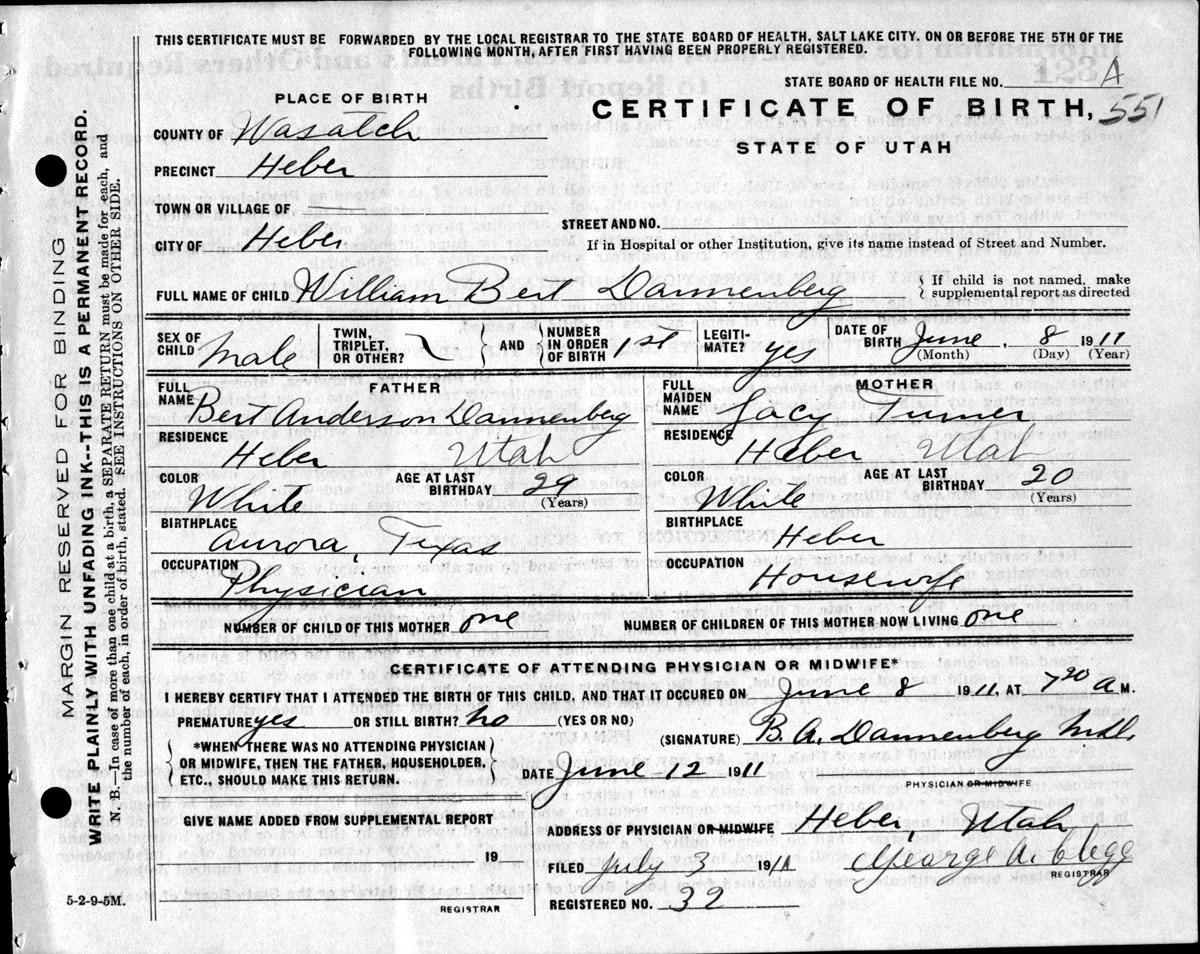 THIS CERTIFICATE MUST BE FORWARDED BY THE LOCAL REGISTRAR TO THE STATE BOARD OF HEALTH, SALT LAKE CITY. ON OR BEFORE THE 5TH OF THE
FOLLOWING MONTH, AFTER FIRST HAVING BEEN PROPERLY REGISTERED.
STATE BOARD OF HEALTH FILE NO. 123 A
PLACE OF BIRTH
CERTIFICATE OF BIRTH, 551
STATE OF UTAH
COUNTY OF Wasatch
PRECINCT Heber
TOWN OR VILLAGE OF
STREET AND NO.
CITY OF Heber
If in Hospital or other Institution, give its name instead of Street and Number.
FULL NAME OF CHILD William Bert Dannenberg
{ If child is not named, make
supplemental report as directed
SEX OF CHILD Male
TWIN, TRIPLET, OR OTHER?
AND
NUMBER IN ORDER OF BIRTH 1st
LEGITI-MATE? yes
DATE OF BIRTH June 8 1911
(Month) (Day) (Year)
FATHER
FULL NAME Bert Anderson Dannenberg
RESIDENCE Heber Utah
COLOR White
AGE AT LAST BIRTHDAY 29
(Years)
BIRTHPLACE Aurora, Texas
OCCUPATION Physician
MOTHER
FULL MAIDEN NAME Lacy Turner
RESIDENCE Heber Utah
COLOR White
AGE AT LAST BIRTHDAY 20
(Years)
BIRTHPLACE Heber
OCCUPATION Housewife
NUMBER OF CHILD OF THIS MOTHER one
NUMBER OF CHILDREN OF THIS MOTHER NOW LIVING one
CERTIFICATE OF ATTENDING PHYSICIAN OR MIDWIFE*
I HEREBY CERTIFY THAT I ATTENDED THE BIRTH OF THIS CHILD, AND THAT IT OCCURED ON June 8 1911, AT 7 20 A M.
PREMATURE yes OR STILL BIRTH? no (YES OR NO)
(SIGNATURE) B. A. Dannenberg M.D.
*WHEN THERE WAS NO ATTENDING PHYSICIAN
OR MIDWIFE, THEN THE FATHER, HOUSEHOLDER,
ETC., SHOULD MAKE THIS RETURN.
DATE June 12 1911
PHYSICIAN OR MIDWIFE
GIVE NAME ADDED FROM SUPPLEMENTAL REPORT
19
REGISTRAR
ADDRESS OF PHYSICIAN OR MIDWIFE Heber, Utah
FILED July 3 191
George A. Clegg
REGISTRAR
REGISTERED NO. 32
5-2-9-5M.
MARGIN RESERVED FOR BINDING
WRITE PLAINLY WITH UNFADING INK--THIS IS A PERMANENT RECORD.
N. B.—In case of more than one child at a birth, a SEPARATE RETURN must be made for each, and
the number of each, in order of birth, stated. SEE INSTRUCTIONS ON OTHER SIDE.